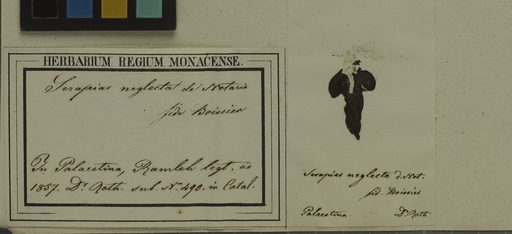 HERBARIUM REGIUM MONACENSE.
Serapias neglecta de Notaris
fide Boissier
In Palaestina, Ramleh legt. ao
1837. Dr Roth. sub No. 490. in Catal.
Serapias neglecta d. Not.
fid. Boissier
Palaestina Dr Roth